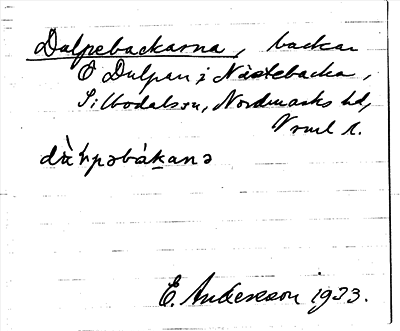 Dalpebackarna, backar
E Dalpan i Nästebacka,
Silbodals sn, Nordmarks hd,
Vrml l.
dàɫpəbákanə
E. Andersson 1933.